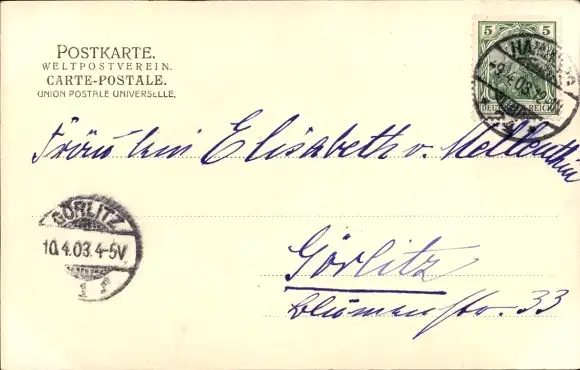 POSTKARTE.
WELTPOSTVEREIN.
CARTE-POSTALE.
UNION POSTALE UNIVERSELLE.
5 5
DEUTSCHES REICH
9.4.03.12
Fräulein Elisabeth v. Mellenthin
GÖRLITZ
10.4.03.4-5V
Görlitz
Blumenstr. 33